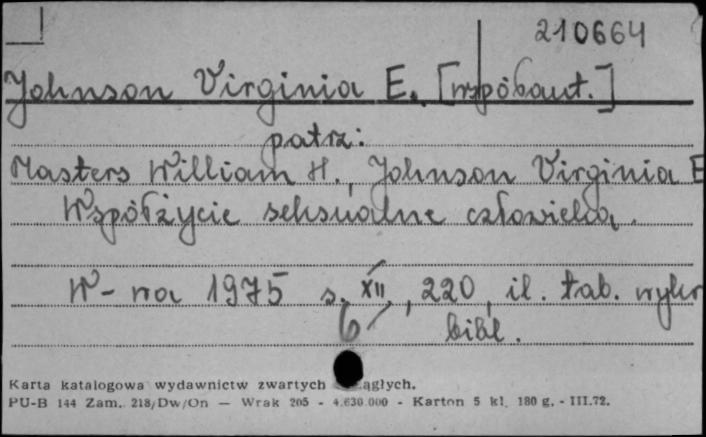 210664
Johnson Virginia E. [współaut.]
patrz:
Masters William H., Johnson Virginia E
Współżycie seksualne człowieka.
W-wa 1975 s. XII, 220, il. tab. wykr
6 bibl.
Karta katalogowa wydawnictw zwartych ągłych.
PU-B 144 Zam. 218/Dw/On — Wrak 205 - 4.630.000 - Karton 5 kl. 180 g. - III.72.